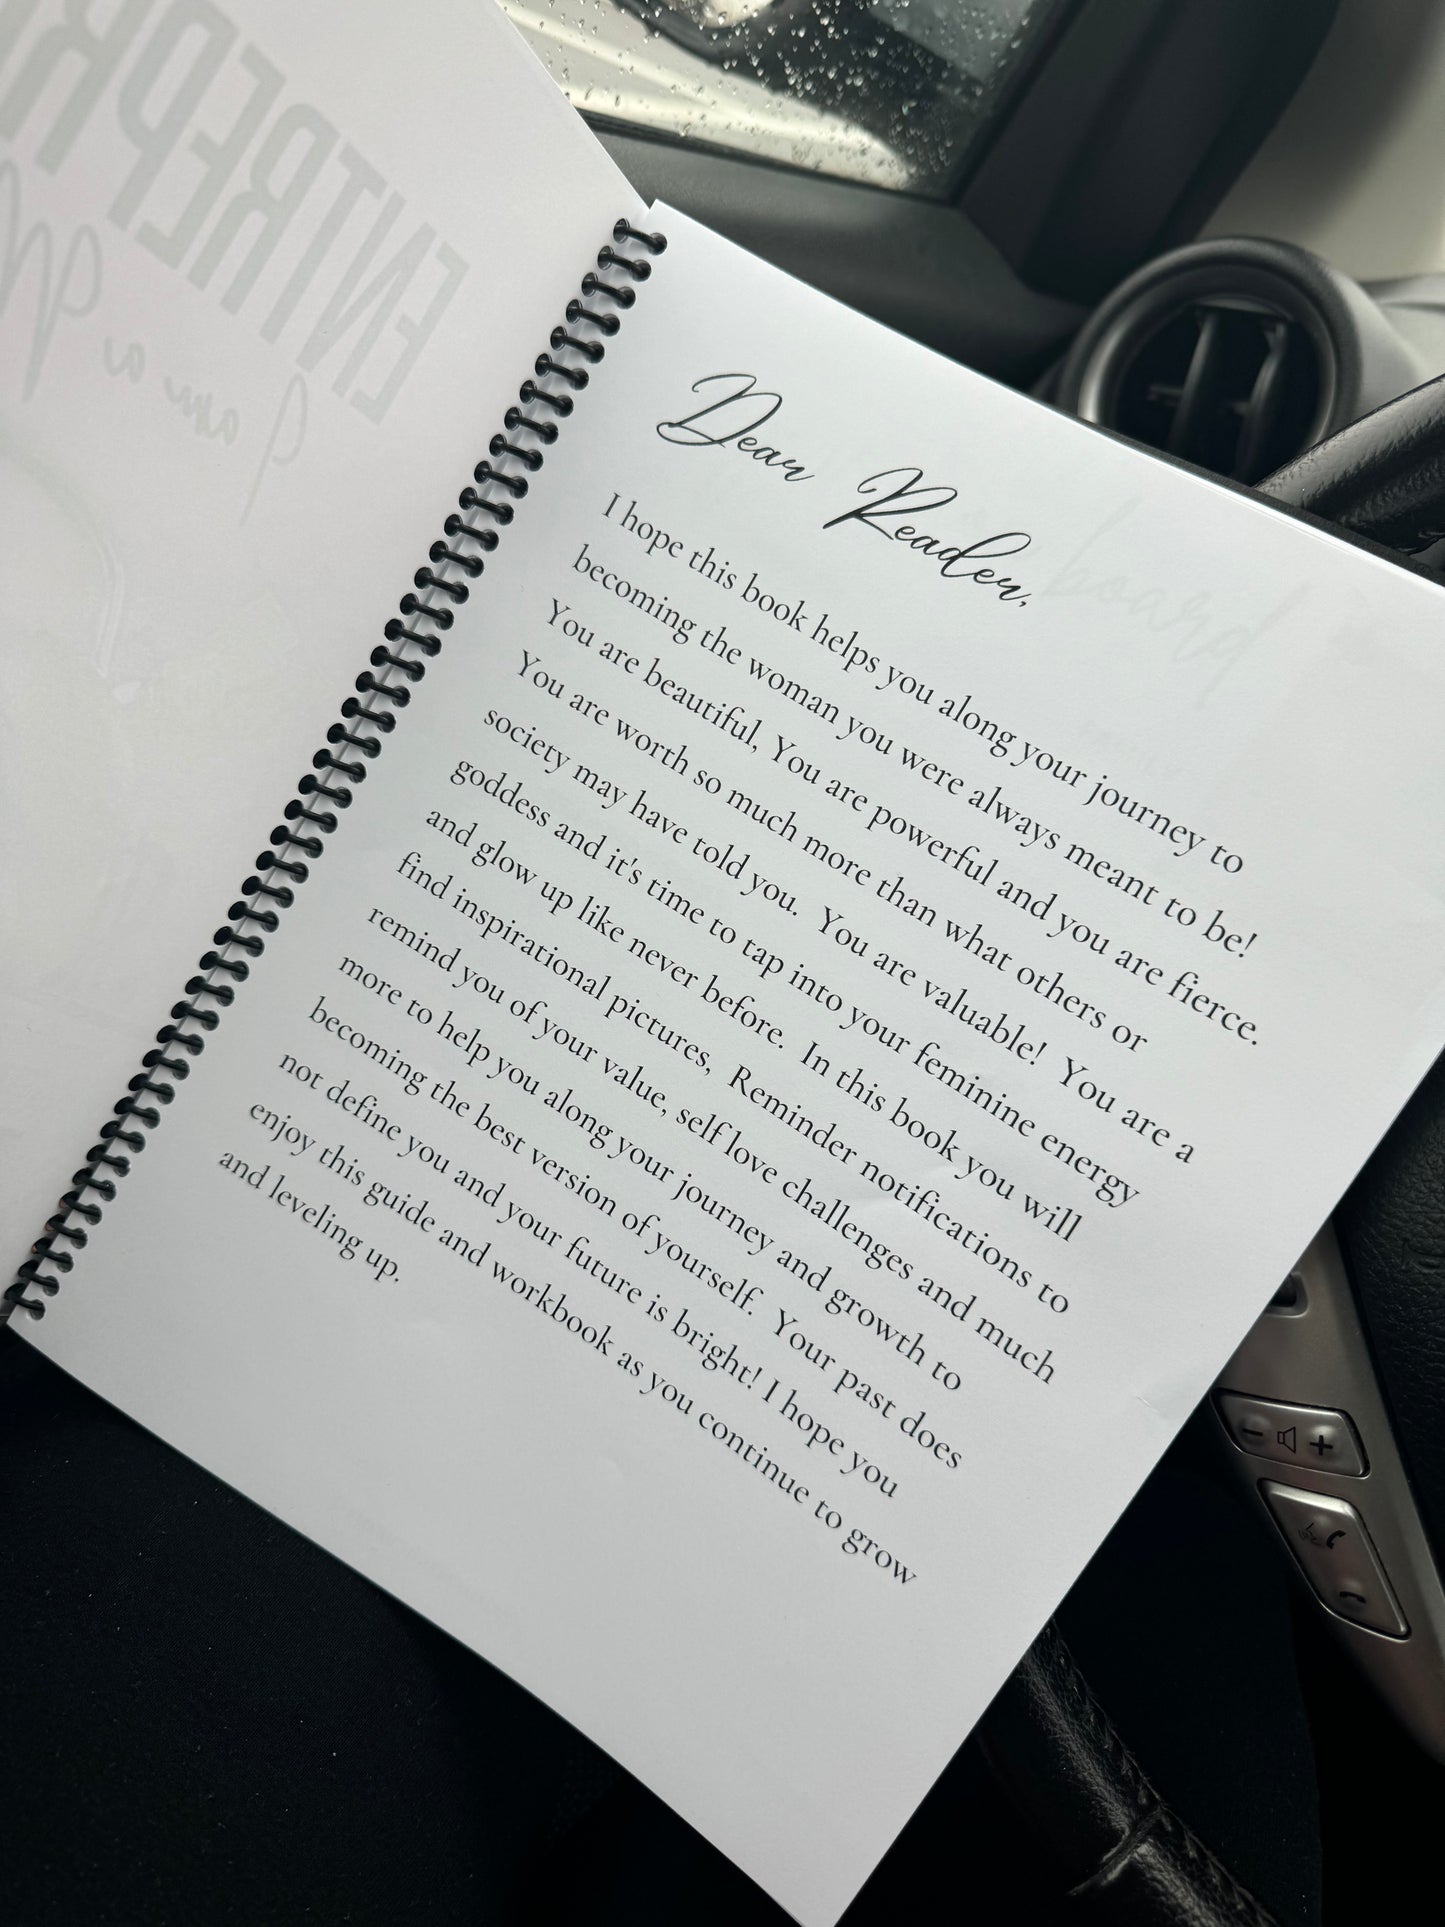 Dear Reader,
I hope this book helps you along your journey to
becoming the woman you were always meant to be!
You are beautiful, You are powerful and you are fierce.
You are worth so much more than what others or
society may have told you.  You are valuable!  You are a
goddess and it's time to tap into your feminine energy
and glow up like never before.  In this book you will
find inspirational pictures,  Reminder notifications to
remind you of your value, self love challenges and much
more to help you along your journey and growth to
becoming the best version of yourself.  Your past does
not define you and your future is bright! I hope you
enjoy this guide and workbook as you continue to grow
and leveling up.
I am a
board